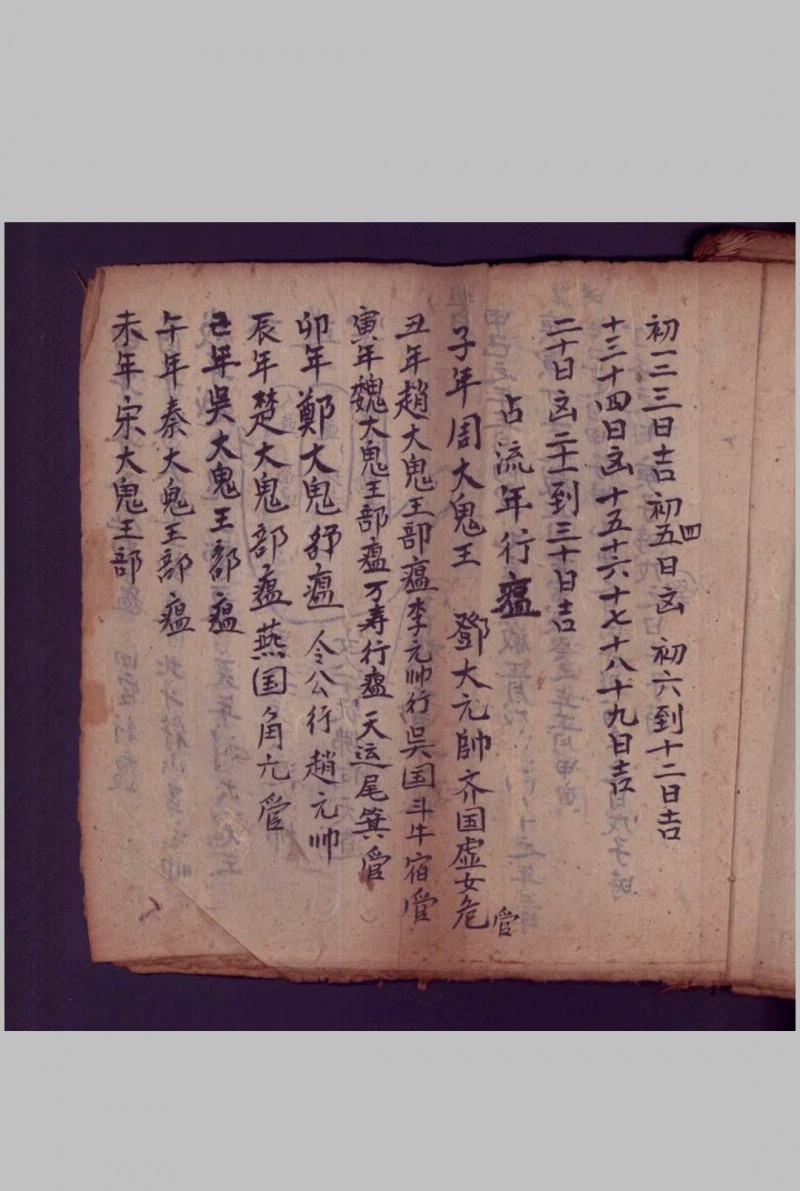 初一二三日吉 初四五日凶 初六到十二日吉
十三十四日凶 十五十六十七十八十九日吉
二十日凶 二十一到三十日吉
占流年行瘟
子年周大鬼王 鄧大元帥齐国虚女危管
丑年趙大鬼王部瘟李元帅行吳国斗牛宿管
寅年魏大鬼王部瘟万寿行瘟天运尾箕管
卯年鄭大鬼舒瘟 令公行趙元帅
辰年楚大鬼部瘟燕国角亢管
巳年吳大鬼王部瘟
午年秦大鬼王部瘟
未年宋大鬼王部